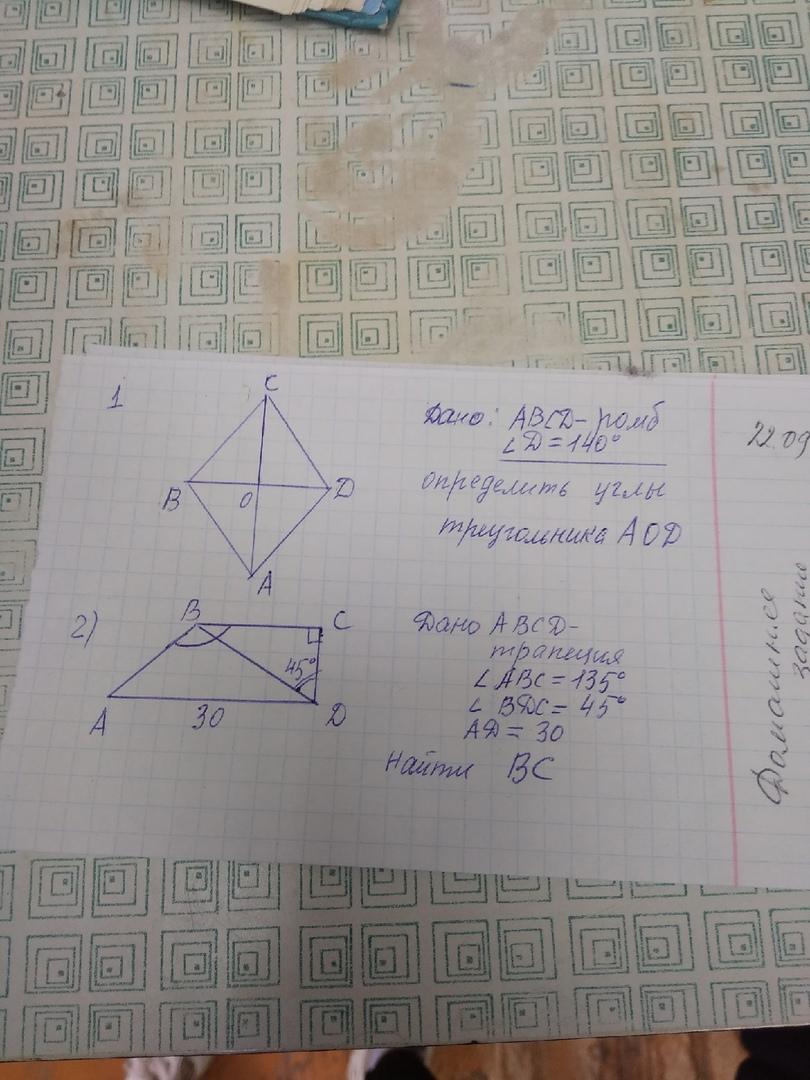 1
C
B
O
D
A
Дано: ABCD - ромб
∠D = 140°
определить углы
треугольника AOD
22.09
Домашнее
задание
2)
B
C
45°
A
30
D
Дано ABCD -
трапеция
∠ABC = 135°
∠BDC = 45°
AD = 30
Найти BC